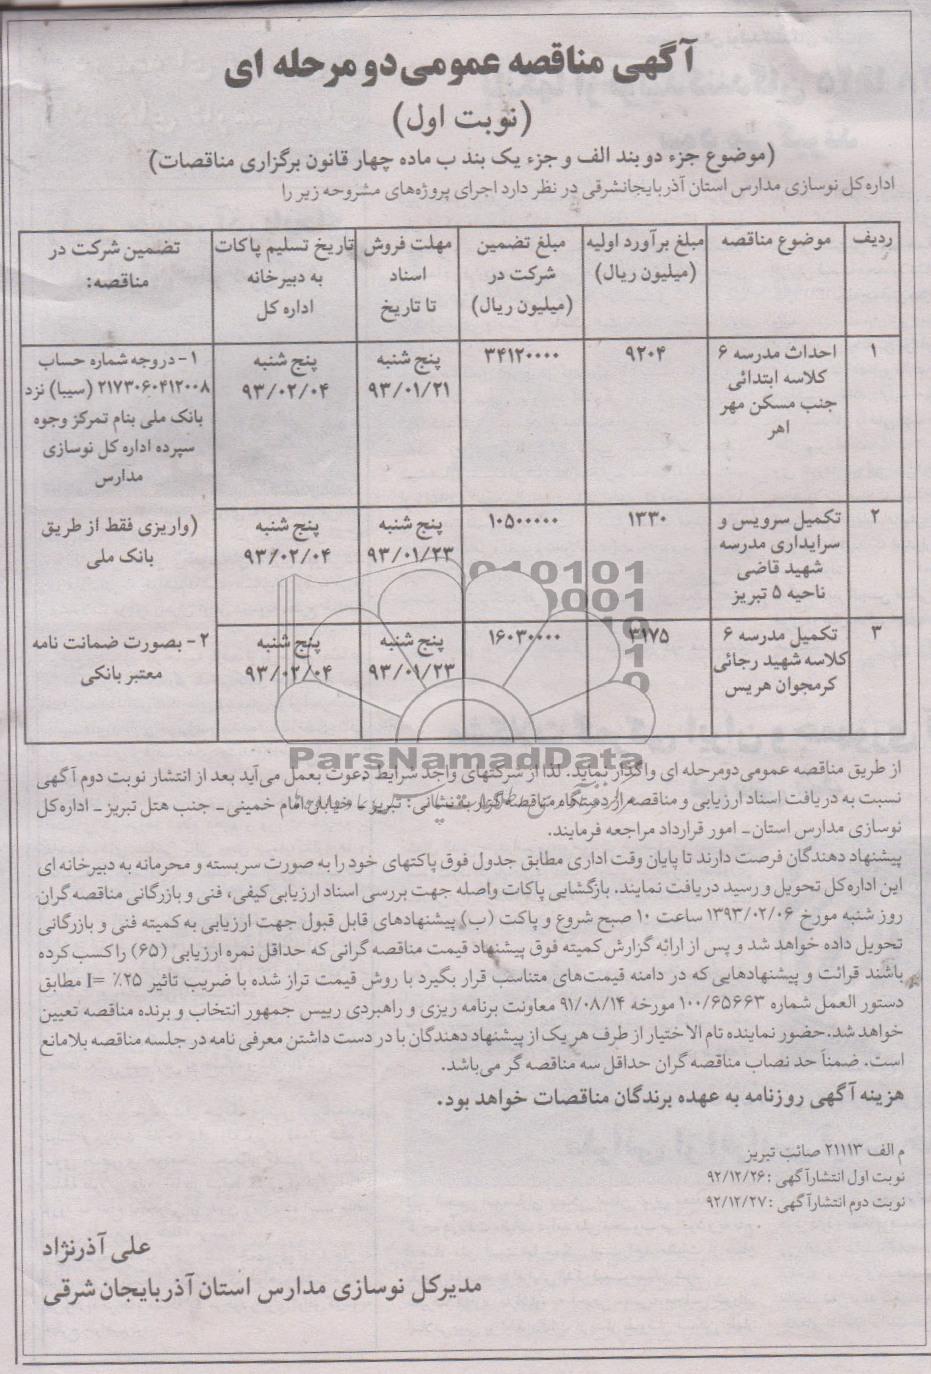 آگهی مناقصه عمومی دو مرحله ای
(نوبت اول)
(موضوع جزء دو بند الف و جزء یک بند ب ماده چهار قانون برگزاری مناقصات)
اداره کل نوسازی مدارس استان آذربایجانشرقی در نظر دارد اجرای پروژه‌های مشروحه زیر را
ردیف
موضوع مناقصه
مبلغ برآورد اولیه
(میلیون ریال)
مبلغ تضمین
شرکت در
(میلیون ریال)
مهلت فروش
اسناد
تا تاریخ
تاریخ تسلیم پاکات
به دبیرخانه
اداره کل
تضمین شرکت در
مناقصه:
۱
احداث مدرسه ۶
کلاسه ابتدائی
جنب مسکن مهر
اهر
۹۲۰۴
۳۴۱۲۰۰۰۰
پنج شنبه
۹۳/۰۱/۲۱
پنج شنبه
۹۳/۰۲/۰۴
۱- دروجه شماره حساب
۲۱۷۳۰۶۰۴۱۲۰۰۸ (سیبا) نزد
بانک ملی بنام تمرکز وجوه
سپرده اداره کل نوسازی
مدارس
۲
تکمیل سرویس و
سرایداری مدرسه
شهید قاضی
ناحیه ۵ تبریز
۱۳۳۰
۱۰۵۰۰۰۰۰
پنج شنبه
۹۳/۰۱/۲۳
پنج شنبه
۹۳/۰۲/۰۴
(واریزی فقط از طریق
بانک ملی
۳
تکمیل مدرسه ۶
کلاسه شهید رجائی
کرمجوان هریس
۳۱۷۵
۱۶۰۳۰۰۰۰
پنج شنبه
۹۳/۰۱/۲۳
پنج شنبه
۹۳/۰۲/۰۴
۲- بصورت ضمانت نامه
معتبر بانکی
ParsNamadData
از طریق مناقصه عمومی دومرحله ای واگذار نماید. لذا از شرکتهای واجد شرایط دعوت بعمل می‌آید بعد از انتشار نوبت دوم آگهی
نسبت به دریافت اسناد ارزیابی و مناقصه از دستگاه مناقصه گزار به نشانی: تبریز ـ خیابان امام خمینی ـ جنب هتل تبریز ـ اداره کل
نوسازی مدارس استان ـ امور قرارداد مراجعه فرمایند.
پیشنهاد دهندگان فرصت دارند تا پایان وقت اداری مطابق جدول فوق پاکتهای خود را به صورت سربسته و محرمانه به دبیرخانه ای
این اداره کل تحویل و رسید دریافت نمایند. بازگشایی پاکات واصله جهت بررسی اسناد ارزیابی کیفی، فنی و بازرگانی مناقصه گران
روز شنبه مورخ ۱۳۹۳/۰۲/۰۶ ساعت ۱۰ صبح شروع و پاکت (ب) پیشنهادهای قابل قبول جهت ارزیابی به کمیته فنی و بازرگانی
تحویل داده خواهد شد و پس از ارائه گزارش کمیته فوق پیشنهاد قیمت مناقصه گرانی که حداقل نمره ارزیابی (۶۵) را کسب کرده
باشند قرائت و پیشنهادهایی که در دامنه قیمت‌های متناسب قرار بگیرد با روش قیمت تراز شده با ضریب تاثیر ۲۵٪ =I مطابق
دستور العمل شماره ۱۰۰/۶۵۶۶۳ مورخه ۹۱/۰۸/۱۴ معاونت برنامه ریزی و راهبردی رییس جمهور انتخاب و برنده مناقصه تعیین
خواهد شد. حضور نماینده تام الاختیار از طرف هر یک از پیشنهاد دهندگان با در دست داشتن معرفی نامه در جلسه مناقصه بلامانع
است. ضمناً حد نصاب مناقصه گران حداقل سه مناقصه گر می‌باشد.
هزینه آگهی روزنامه به عهده برندگان مناقصات خواهد بود.
م الف ۲۱۱۱۳ صائب تبریز
نوبت اول انتشار آگهی: ۹۲/۱۲/۲۶
نوبت دوم انتشار آگهی: ۹۲/۱۲/۲۷
علی آذرنژاد
مدیرکل نوسازی مدارس استان آذربایجان شرقی